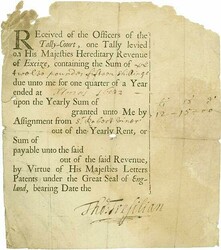 Received of the Officers of the
Tally-Court, one Tally levied
on His Majesties Hereditary Revenue
of Excize, containing the Sum of
twelve pounds fifteen shillings
due unto me for one quarter of a Year
ended at
upon the Yearly Sum of
granted unto Me by
Assignment from
out of the Yearly Rent, or
Sum of
payable unto the said
out of the said Revenue,
by Virtue of His Majesties Letters
Patents under the Great Seal of Eng-
land, bearing Date the
12-15-00
Tho: Tresilian